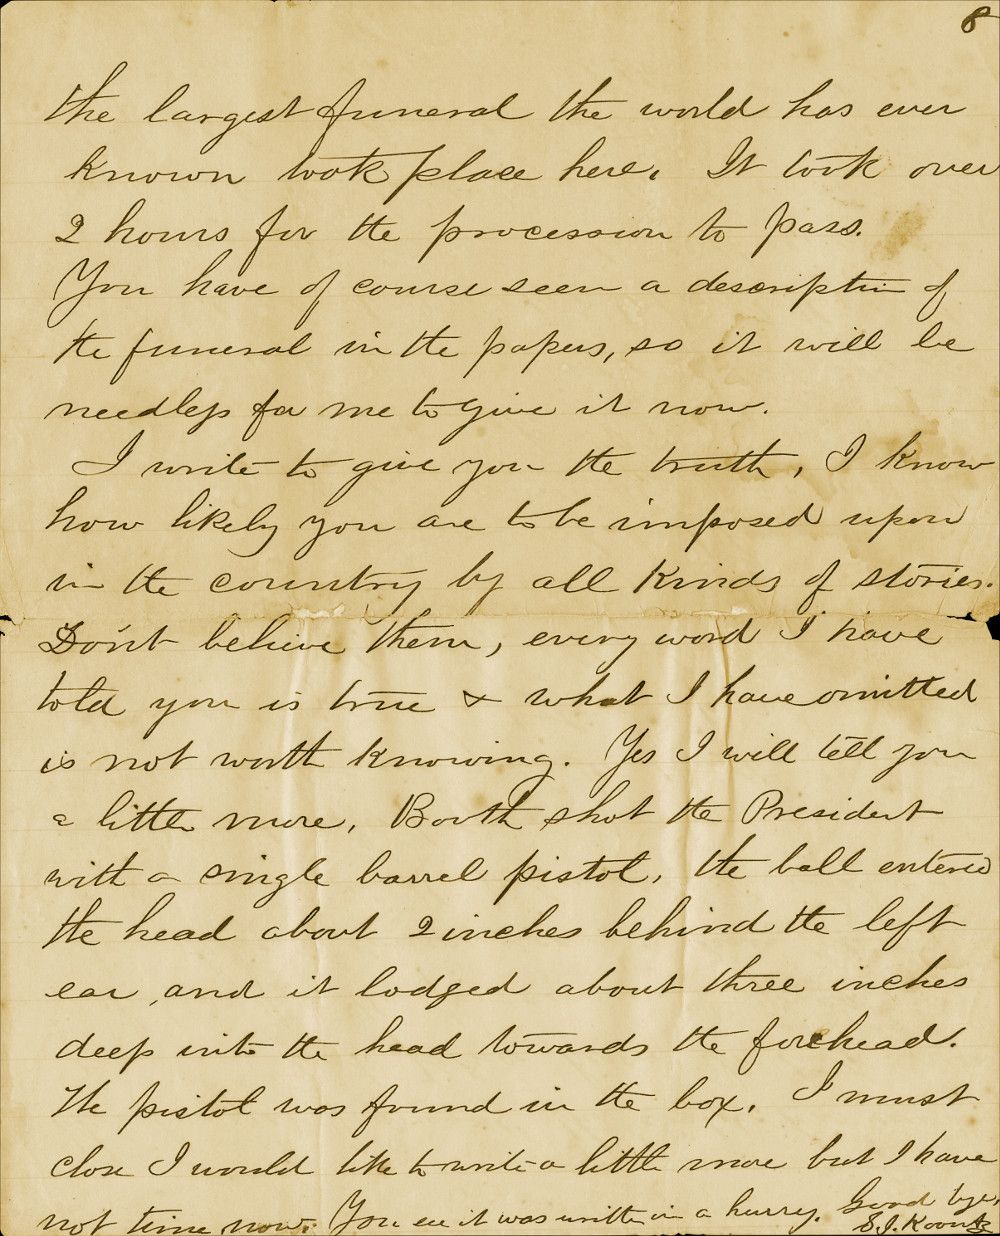 8
the largest funeral the world has ever
known took place here. It took over
2 hours for the procession to pass.
You have of course seen a description of
the funeral in the papers, so it will be
needless for me to give it now.
I write to give you the truth, I know
how likely you are to be imposed upon
in the country by all kinds of stories.
Don't believe them, every word I have
told you is true & what I have omitted
is not worth knowing. Yes I will tell you
a little more, Booth shot the President
with a single barrel pistol, the ball entered
the head about 2 inches behind the left
ear, and it lodged about three inches
deep into the head towards the forehead.
The pistol was found in the box. I must
close I would like to write a little more but I have
not time now. You see it was written in a hurry. Good bye,
S.J. Koontz